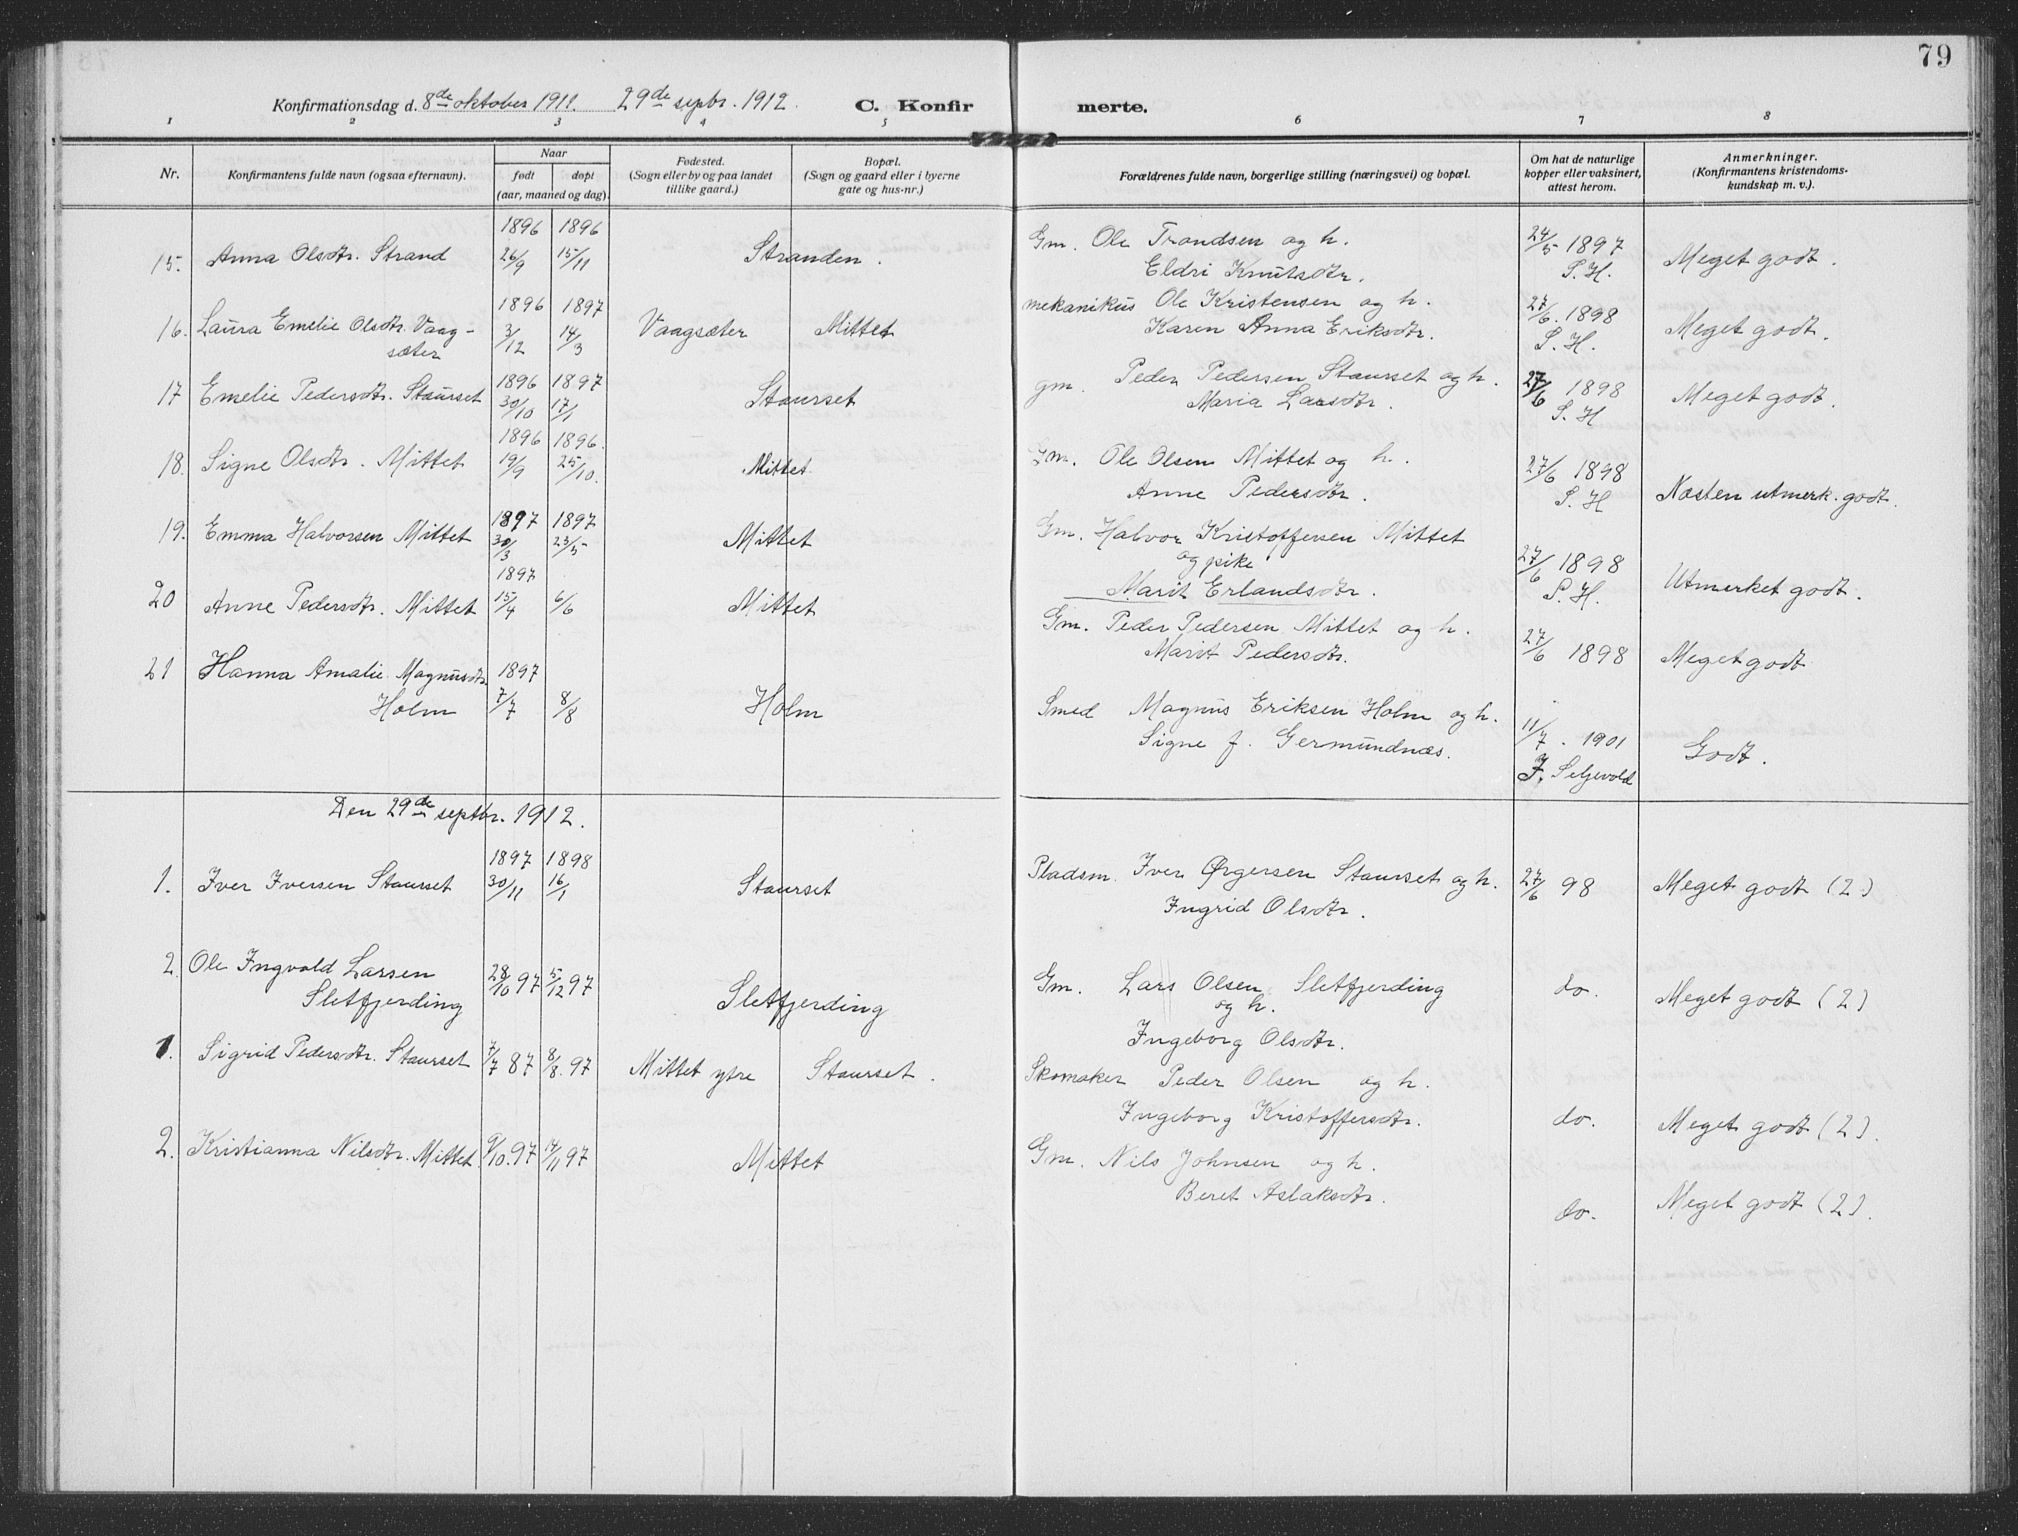 79
Konfirmationsdag d. 8de oktober 1911. 29de septbr. 1912. C. Konfirmerte.
1 2 3 4 5 6 7 8
Nr.
Konfirmantens fulde navn (ogsaa efternavn).
Naar
født døpt
(aar, maaned og dag).
Fødested.
(Sogn eller by og paa landet
tillike gaard.)
Bopæl.
(Sogn og gaard eller i byerne
gate og hus-nr.)
Forældrenes fulde navn, borgerlige stilling (næringsvei) og bopæl.
Om hat de naturlige
kopper eller vaksinert,
attest herom.
Anmerkninger.
(Konfirmantens kristendoms-
kundskap m. v.)
1896 1896
15. Anna Olsdtr. Strand 26/9 15/11 Stranden. Gm. Ole Trondsen og h. 24/5 1897 Meget godt.
Eldri Knutsdtr. S.H.
1896 1897
16. Laura Emelie Olsdtr. Vaag- 3/12 14/3 Vaagsæter Mittet mekanikus Ole Kristensen og h. 27/6. 1898 Meget godt.
sæter Karen Anna Eriksdtr. S. H.
1896 1897
17 Emelie Pedersdtr. Staurset 30/10 17/1 Staurset gm. Peder Pedersen Staurset og h. 27/6 1898 Meget godt.
Maria Larsdtr. S. H
1896 1896.
18. Signe Olsdtr. Mittet 19/9 25/10. Mittet Gm. Ole Olsen Mittet og h. 27/6 1898 Næsten utmerk. godt.
Anne Pedersdtr. S. H
1897 1897
19. Emma Halvorsen Mittet 30/3 23/5 Mittet Gm. Halvor Kristoffersen Mittet 27/6 1898 Utmerket godt.
og pike S.H.
Marit Erlandsdtr.
1897
20 Anne Pedersdtr. Mittet 15/4 6/6 Mittet Gm. Peder Pedersen Mittet og h. 27/6 1898 Meget godt
Marit Pedersdtr.
21 Hanna Amalie Magnusdtr 1897
Holm 7/7 8/8 Holm Smed Magnus Eriksen Holm og h. 11/7. 1901 Godt.
Signe f. Germundnæs. J. Seljevold
Den 29de septbr. 1912.
1897 1898
1. Iver Iversen Staurset 30/11 16/1 Staurset Pladsm. Iver Ørgersen Staurset og h. 27/6 98 Meget godt (2)
Ingrid Olsdtr.
2 Ole Ingvald Larsen 28/10 97 5/12 97 Sletfjerding Gm. Lars Olsen Sletfjerding do. Meget godt (2)
Sletfjerding og h.
Ingeborg Olsdtr.
1. Sigrid Pedersdtr. Staurset 7/7 87 8/8. 97 Mittet ytre Staurset. Skomaker Peder Olsen og h. do. Meget godt (2).
Ingeborg Kristoffersdtr.
2. Kristianna Nilsdtr. Mittet 9/10. 97 14/11 97 Mittet Gm. Nils Johnsen og h. do. Meget godt (2).
Beret Aslaksdtr.